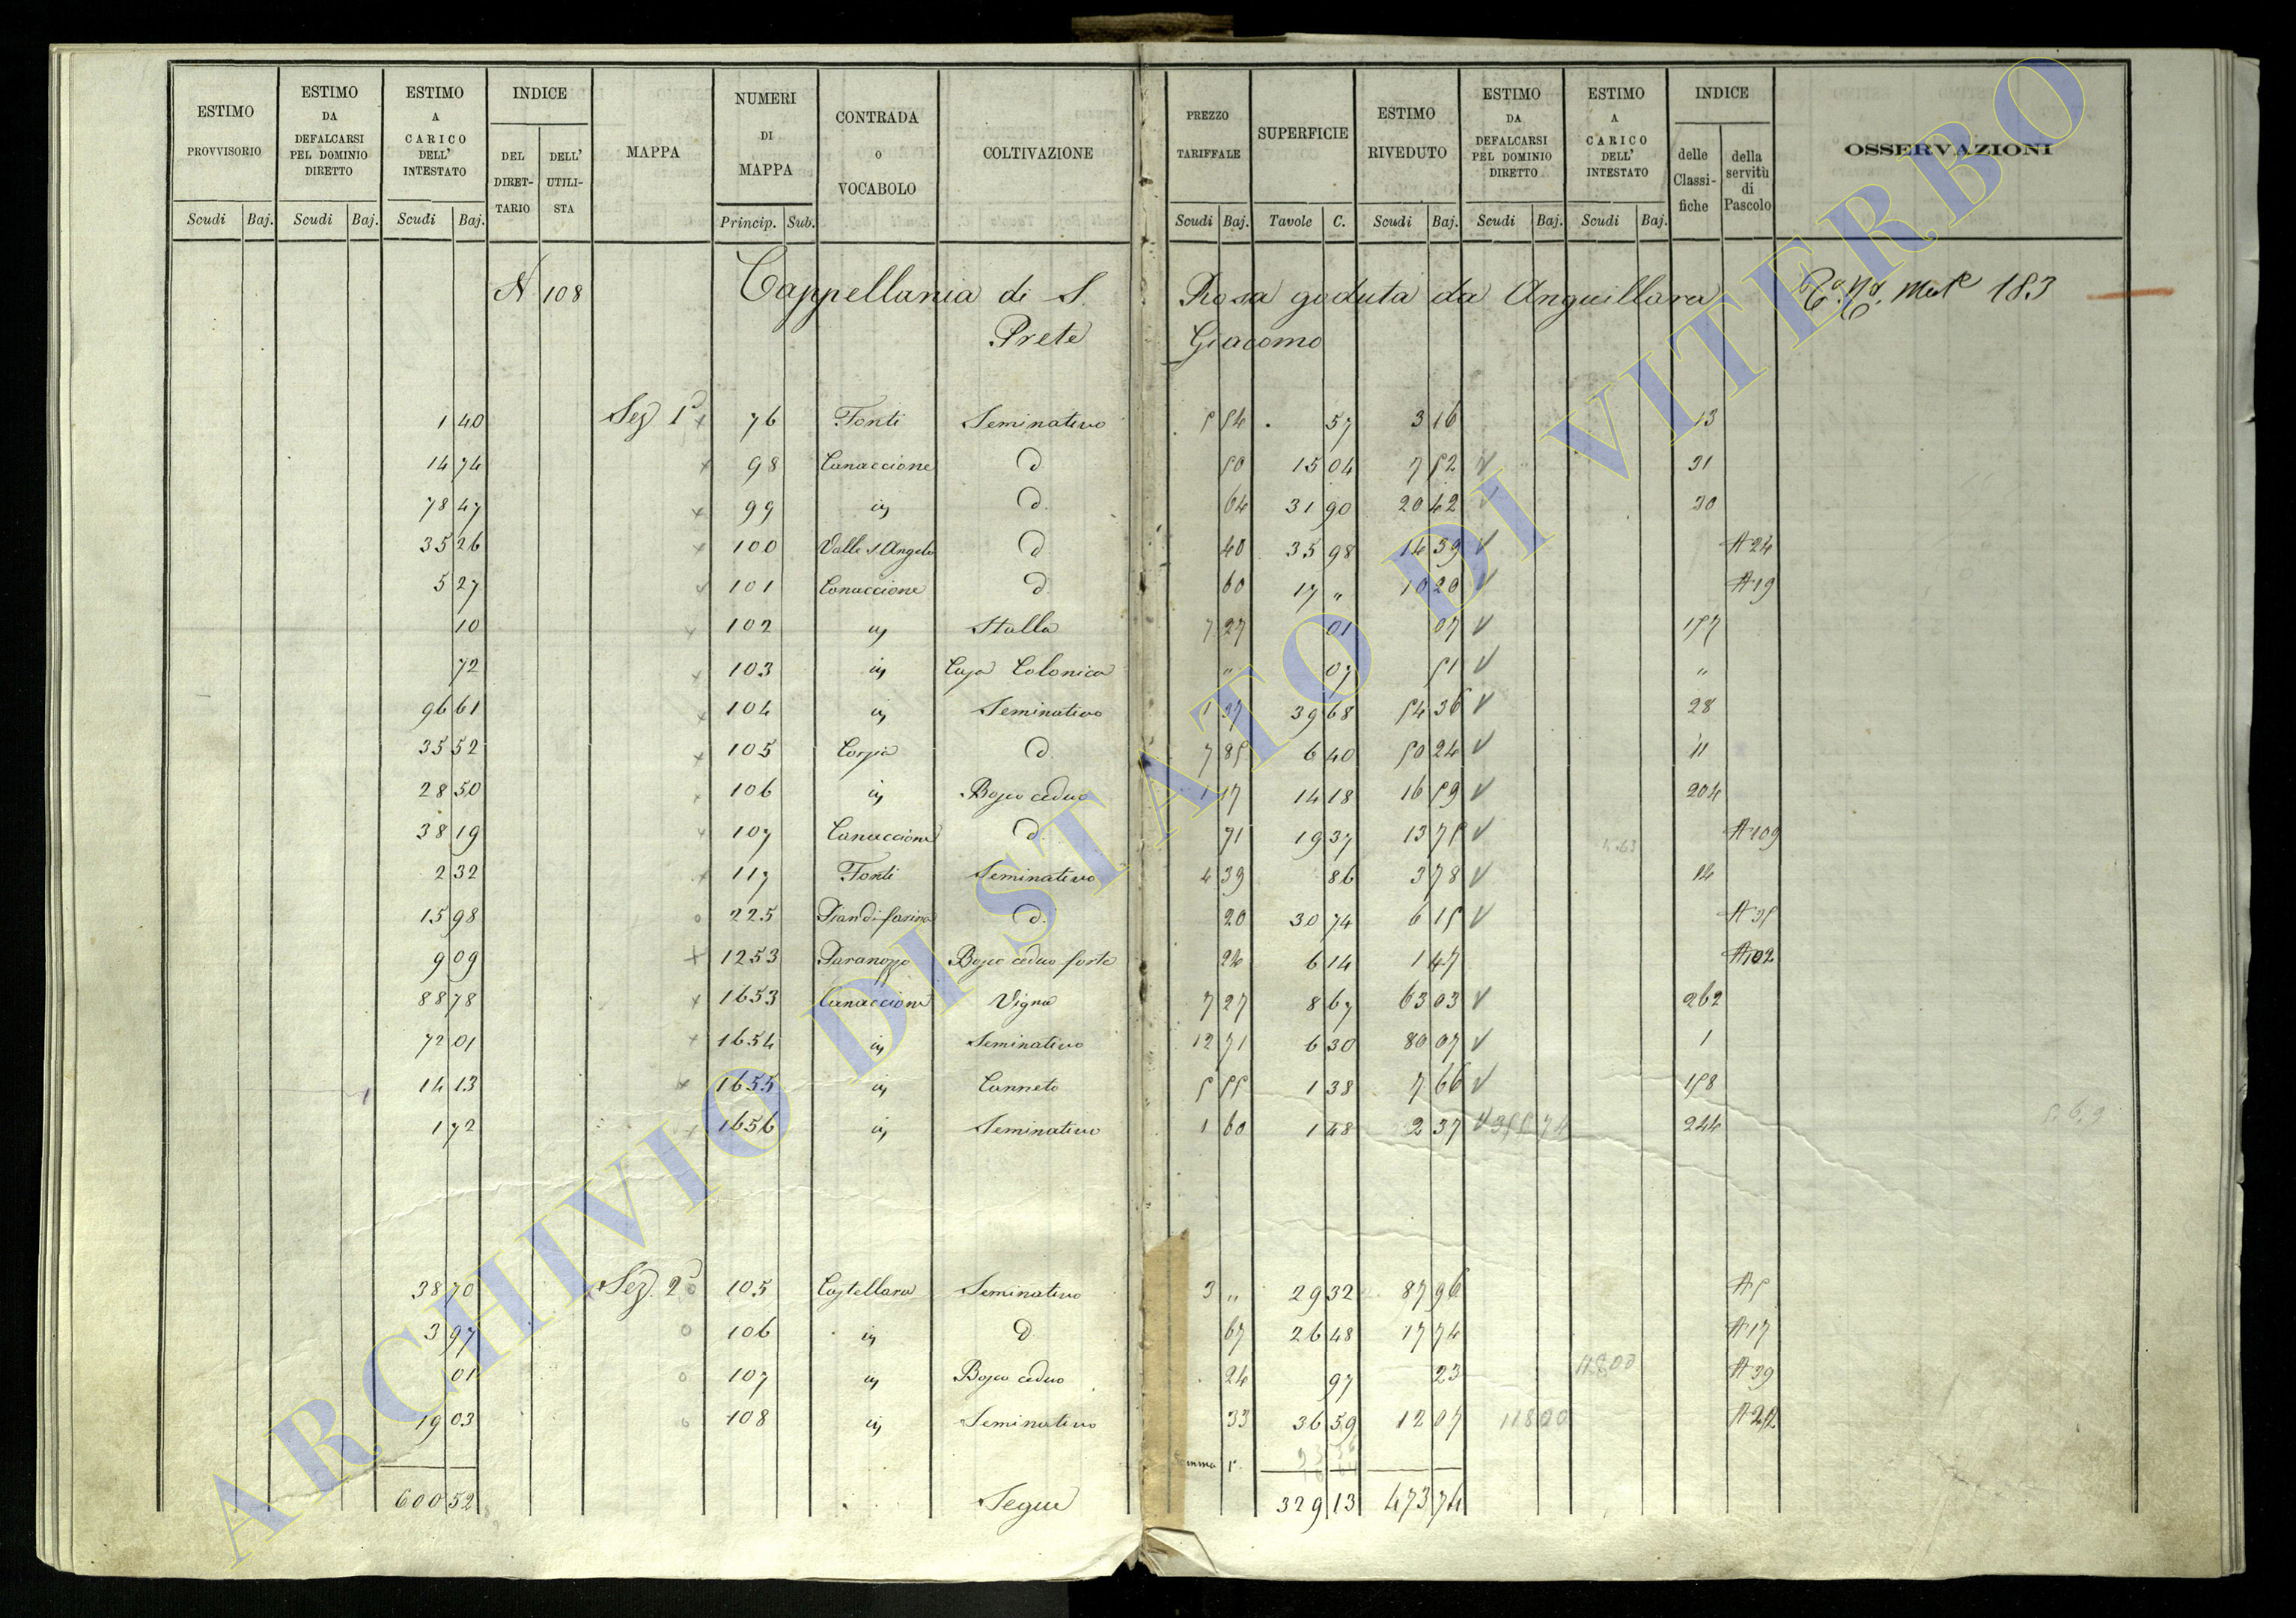 ESTIMO PROVVISORIO Scudi Baj. ESTIMO DA DEFALCARSI PEL DOMINIO DIRETTO Scudi Baj. ESTIMO A CARICO DELL' INTESTATO Scudi Baj. INDICE DEL DIRET- TARIO DELL' UTILI- STA MAPPA NUMERI DI MAPPA Princip. Sub. CONTRADA O VOCABOLO COLTIVAZIONE PREZZO TARIFFALE Scudi Baj. SUPERFICIE Tavole C. ESTIMO RIVEDUTO Scudi Baj. ESTIMO DA DEFALCARSI PEL DOMINIO DIRETTO Scudi Baj. ESTIMO A CARICO DELL' INTESTATO Scudi Baj. INDICE delle Classi- fiche della servitù di Pascolo OSSERVAZIONI
N. 108 Cappellania di S. Rosa goduta da Anguillara 183
Prete Giacomo
1 40 Sez 1ª 76 Fonti Seminativo 5 54 57 3 16 13
14 74 98 Canaccione d. 50 15 04 7 52 31
78 47 99 iy d. 64 31 90 20 42 30
35 26 100 Valle S. Angelo d. 40 35 98 14 39 A 24
5 27 101 Conaccione d. 60 17 " 10 20 A 19
10 102 iy Stalla 7 27 01 07 157
72 103 iy Casa Colonica " 07 51 "
96 61 104 iy Seminativo 1 37 39 68 54 36 28
35 52 105 d. 7 85 6 40 50 24 11
28 50 106 iy Bosco ceduo 1 17 14 18 16 59 204
38 19 107 Canaccione d. 71 19 37 13 75 A 109
2 32 117 Fonti Seminativo 4 39 86 3 78 14
15 98 225 Pian di farina d. 20 30 74 6 15 A 35
9 09 1253 Bosco ceduo forte 24 6 14 1 47 A 102
88 78 1653 Canaccione Vigna 7 27 8 67 63 03 262
72 01 1654 iy Seminativo 12 71 6 30 80 07 1
14 13 1655 iy Canneto 5 55 1 38 7 66 158
1 72 1656 iy Seminativo 1 60 1 48 2 37 355 74 244
38 70 Sez. 2ª 105 Castellara Seminativo 3 " 29 32 87 96 A 5
3 97 106 iy d. 67 26 48 17 74 A 17
01 107 iy Bosco ceduo 24 97 23 118 00 A 39
19 03 108 iy Seminativo 33 36 59 12 07 118 00 A 22
Somma
600 52 Segue 329 13 473 74
ARCHIVIO DI STATO DI VITERBO